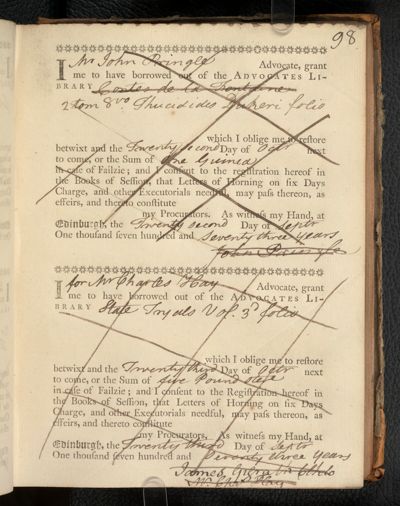 98
I Mr John Pringle Advocate, grant
me to have borrowed out of the ADVOCATES LI-
BRARY Contes de la Fontaine
2 tom 8vo Thucidides Dukeri folio
which I oblige me to restore
betwixt and the Twenty second Day of Octr next
to come, or the Sum of One Guinea
in case of Failzie; and I consent to the registration hereof in
the Books of Session, that Letters of Horning on six Days
Charge, and other Executorials needful, may pass thereon, as
effeirs, and thereto constitute
my Procurators. As witness my Hand, at
Edinburgh, the Twenty second Day of Septr
One thousand seven hundred and seventy three years
John Pringle
I for Mr Charles Hay Advocate, grant
me to have borrowed out of the ADVOCATES LI-
BRARY State Tryals Vol. 3d folio
which I oblige me to restore
betwixt and the Twenty third Day of Octr next
to come, or the Sum of five Pound
in case of Failzie; and I consent to the Registration hereof in
the Books of Session, that Letters of Horning on six Days
Charge, and other Executorials needful, may pass thereon, as
effeirs, and thereto constitute
my Procurators. As witness my Hand, at
Edinburgh, the Twenty third Day of Septr
One thousand seven hundred and Seventy three years
James
Mr Hay